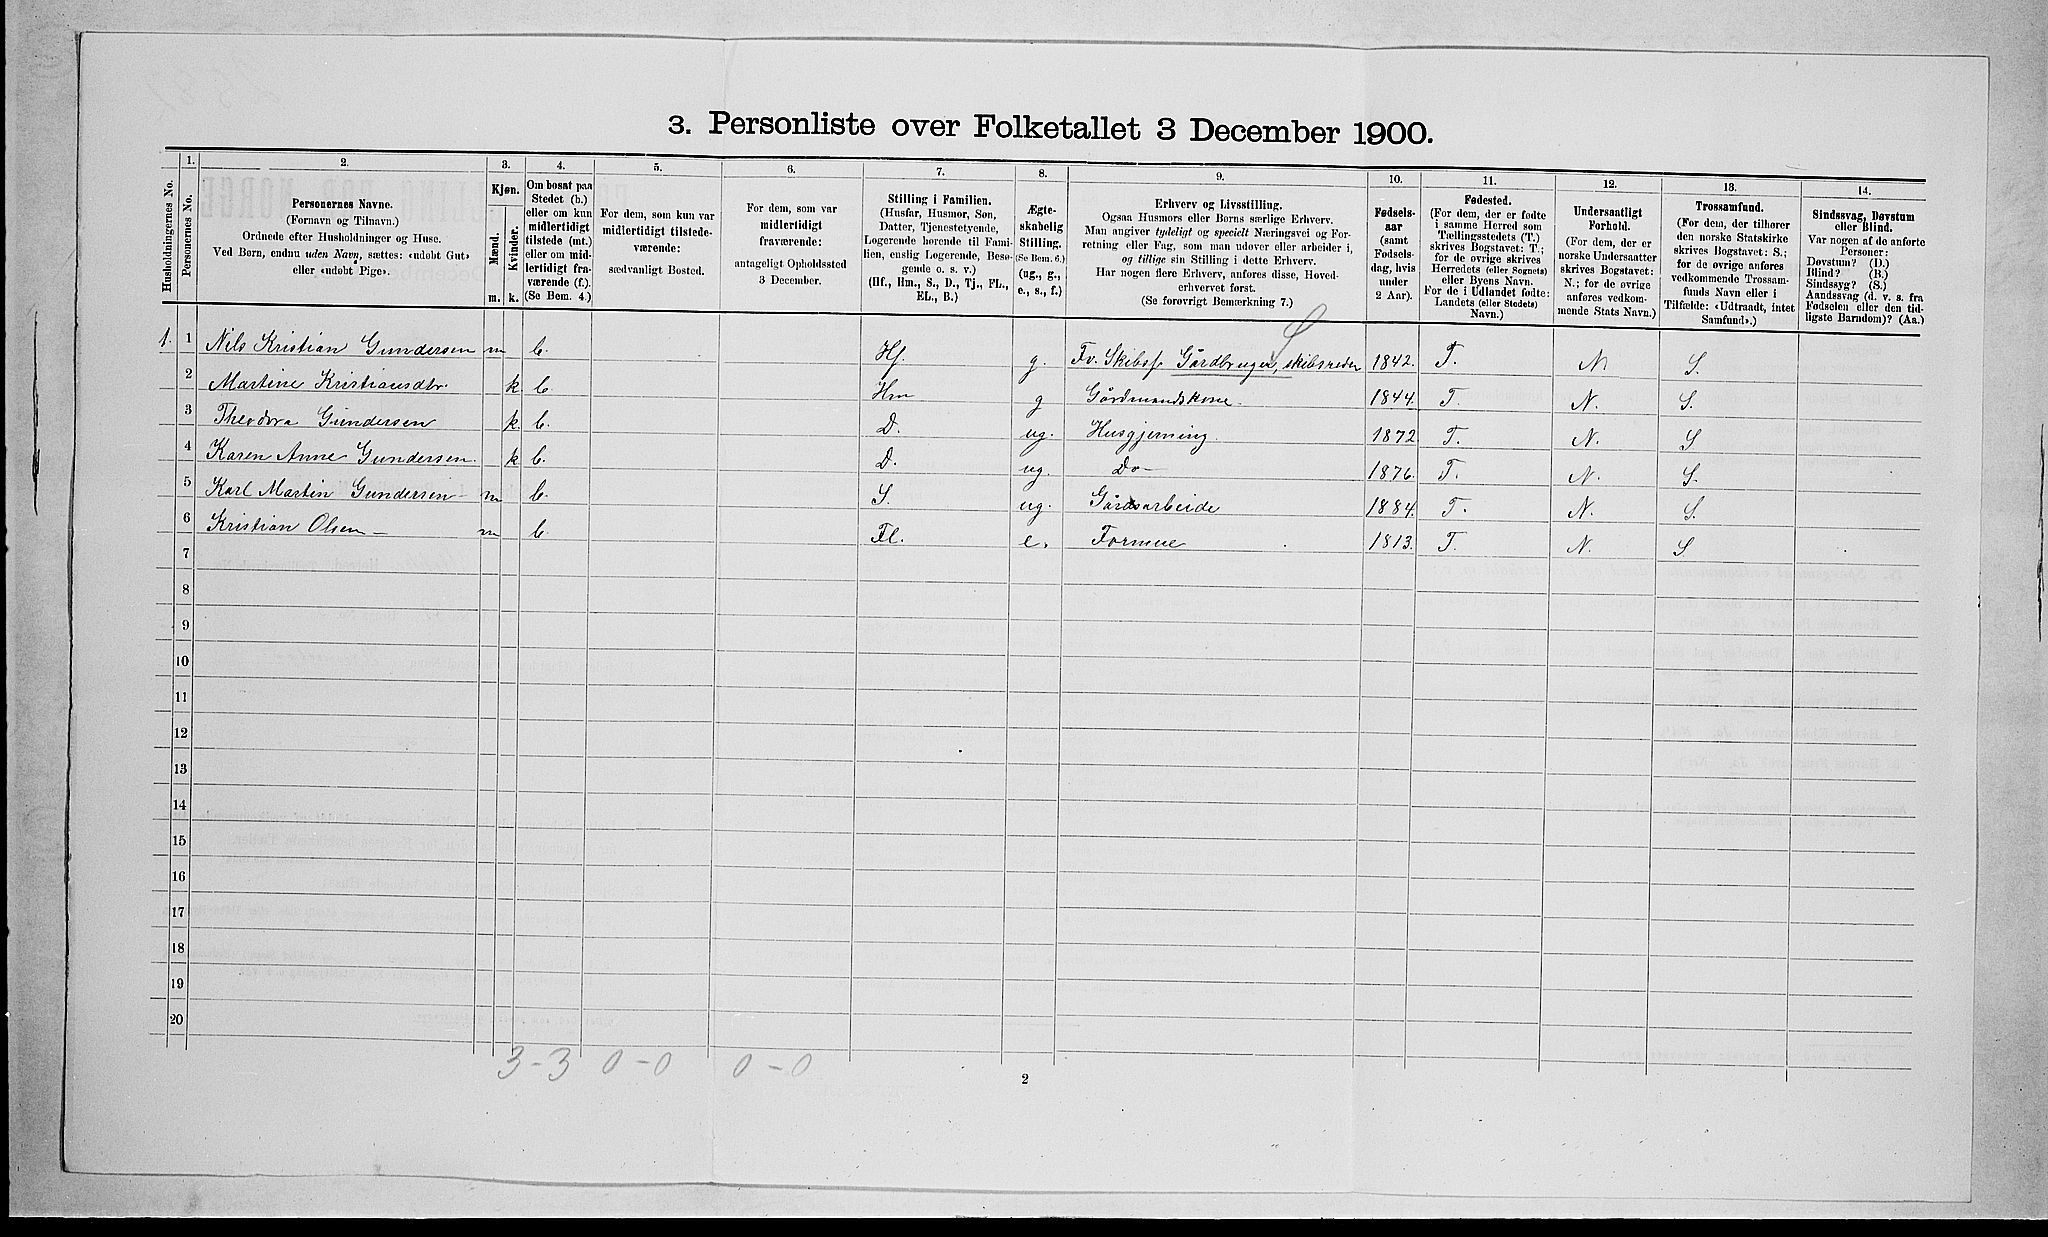 3. Personliste over Folketallet 3 December 1900.
Husholdningernes No.
1.
Personernes No.
2.
Personernes Navne.
(Fornavn og Tilnavn.)
Ordnede efter Husholdninger og Huse.
Ved Børn, endnu uden Navn, sættes: «udøbt Gut»
eller «udøbt Pige».
3.
Kjøn.
Mænd.
Kvinder.
m.
k.
4.
Om bosat paa
Stedet (b.)
eller om kun
midlertidigt
tilstede (mt.)
eller om mid-
lertidigt fra-
værende (f.).
(Se Bem. 4.)
5.
For dem, som kun var
midlertidigt tilstede-
værende:
sædvanligt Bosted.
6.
For dem, som var
midlertidigt
fraværende:
antageligt Opholdssted
3 December.
7.
Stilling i Familien.
(Husfar, Husmor, Søn,
Datter, Tjenestetyende,
Logerende hørende til Fami-
lien, enslig Logerende, Besø-
gende o. s. v.)
(Hf., Hm., S., D., Tj., FL.,
EL., B.)
8.
Ægte-
skabelig
Stilling.
(Se Bem. 6.)
(ug., g.,
e., s., f.)
9.
Erhverv og Livsstilling.
Ogsaa Husmors eller Børns særlige Erhverv.
Man angiver tydeligt og specielt Næringsvei og For-
retning eller Fag, som man udøver eller arbeider i,
og tillige sin Stilling i dette Erhverv.
Har nogen flere Erhverv, anføres disse, Hoved-
erhvervet først.
(Se forøvrigt Bemærkning 7.)
10.
Fødsels-
aar
(samt
Fødsels-
dag, hvis
under
2 Aar).
11.
Fødested.
(For dem, der er fødte
i samme Herred som
Tællingsstedets (T.)
skrives Bogstavet: T.;
for de øvrige skrives
Herredets (eller Sognets)
eller Byens Navn.
For de i Udlandet fødte:
Landets (eller Stedets)
Navn.)
12.
Undersaatligt
Forhold.
(For dem, der er
norske Undersaatter
skrives Bogstavet:
N.; for de øvrige
anføres vedkom-
mende Stats Navn.)
13.
Trossamfund.
(For dem, der tilhører
den norske Statskirke
skrives Bogstavet: S.;
for de øvrige anføres
vedkommende Trossam-
funds Navn eller i
Tilfælde: «Udtraadt, intet
Samfund».)
14.
Sindssvag, Døvstum
eller Blind.
Var nogen af de anførte
Personer:
Døvstum? (D.)
Blind? (B.)
Sindssyg? (S.)
Aandssvag (d. v. s. fra
Fødselen eller den tid-
ligste Barndom)? (Aa.)
1. 1 Nils Kristian Gundersen m b. Hf g. Fv. Skibsf. Gårdbruger, skibsreder 1842. T. N S.
2 Martine Kristiansdtr. k. b Hm g Gårdmandskone. 1844. T. N. S.
3 Theodora Gundersen k. b. D. ug. Husgjerning 1872 T. N. S
4 Karen Anne Gundersen. k b. D. ug. Do— 1876. T. N. S
5 Karl Martin Gundersen m b. S. ug. Gårdsarbeide 1884. T. N. S.
6 Kristian Olsen — m b. Fl. e. Formue 1813. T. N. S
7
8
9
10
11
12
13
14
15
16
17
18
19
20
3 - 3 0 - 0 0 - 0
2